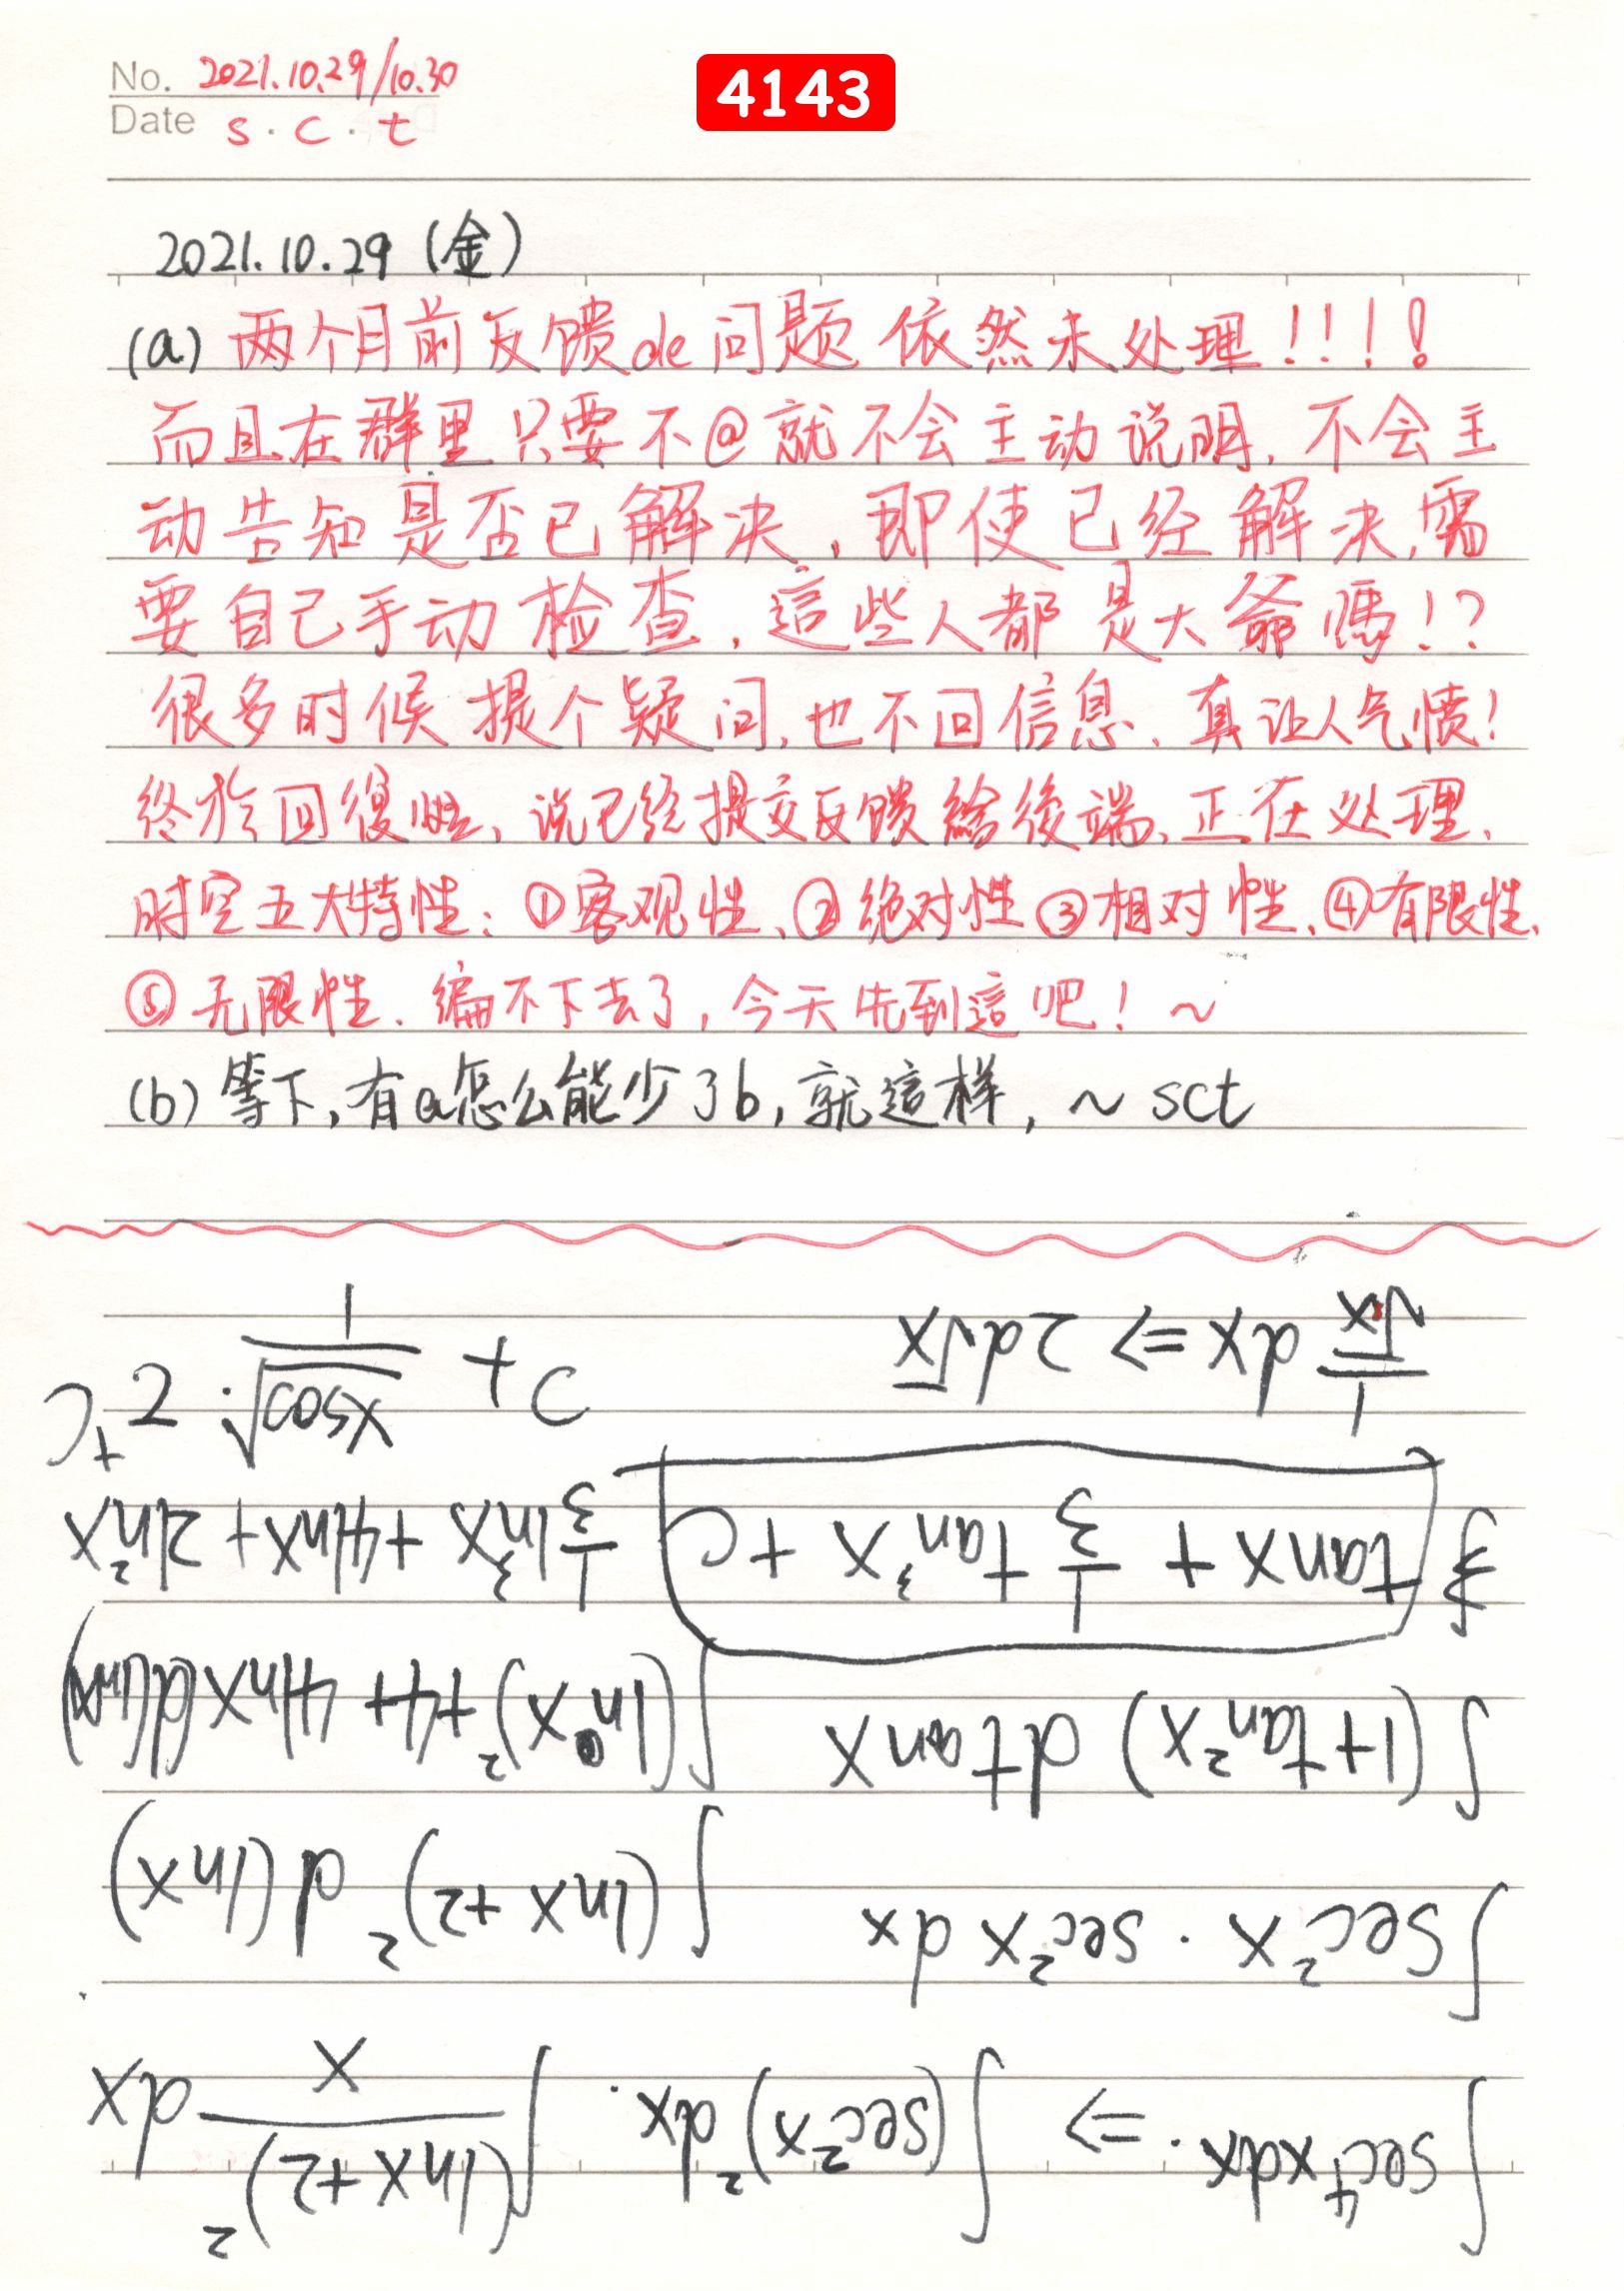 No. 2021.10.29/10.30
4143
Date s.c.t
2021.10.29 (金)
(a) 两个月前反馈de问题依然未处理!!!!
而且在群里只要不@就不会主动说明, 不会主
动告知是否已解决, 即使已经解决, 需
要自己手动检查, 這些人都是大爺嗎!?
很多时候提个疑问, 也不回信息、真让人气愤!
终於回復啦, 说已经提交反馈給後端, 正在处理、
时空五大特性: ①客观性、②绝对性③相对性、④有限性、
⑤无限性、编不下去了, 今天先到這吧! ~
(b) 等下, 有a怎么能少了b, 就這样, ~ sct
∫sec⁴xdx. => ∫(sec²x)²dx.
∫sec²x · sec²x dx
∫(1+tan²x) dtanx
tanx + 1/3 tan³x + C
1/√x dx => 2d√x
∫ (lnx+2)²/x dx
∫(lnx+2)² d(lnx)
∫(lnx)²+4+4lnx(dlnx)
1/3 ln³x + 4lnx + 2ln²x
+C
2 · 1/√cosx + C